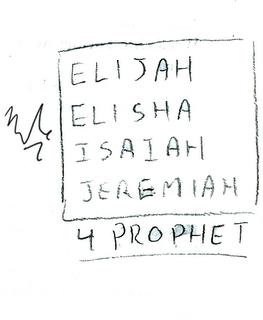 ELIJAH
ELISHA
ISAIAH
JEREMIAH
4 PROPHET